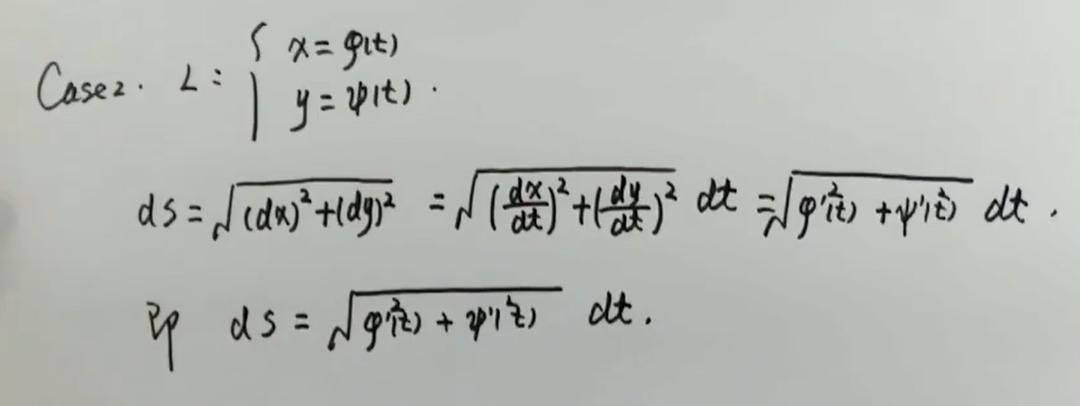 Case2. L: { x=φ(t)
y=ψ(t).
ds=√((dx)²+(dy)²) =√((dx/dt)²+(dy/dt)²) dt =√(φ'²(t)+ψ'²(t)) dt.
即 ds=√(φ'²(t)+ψ'²(t)) dt.